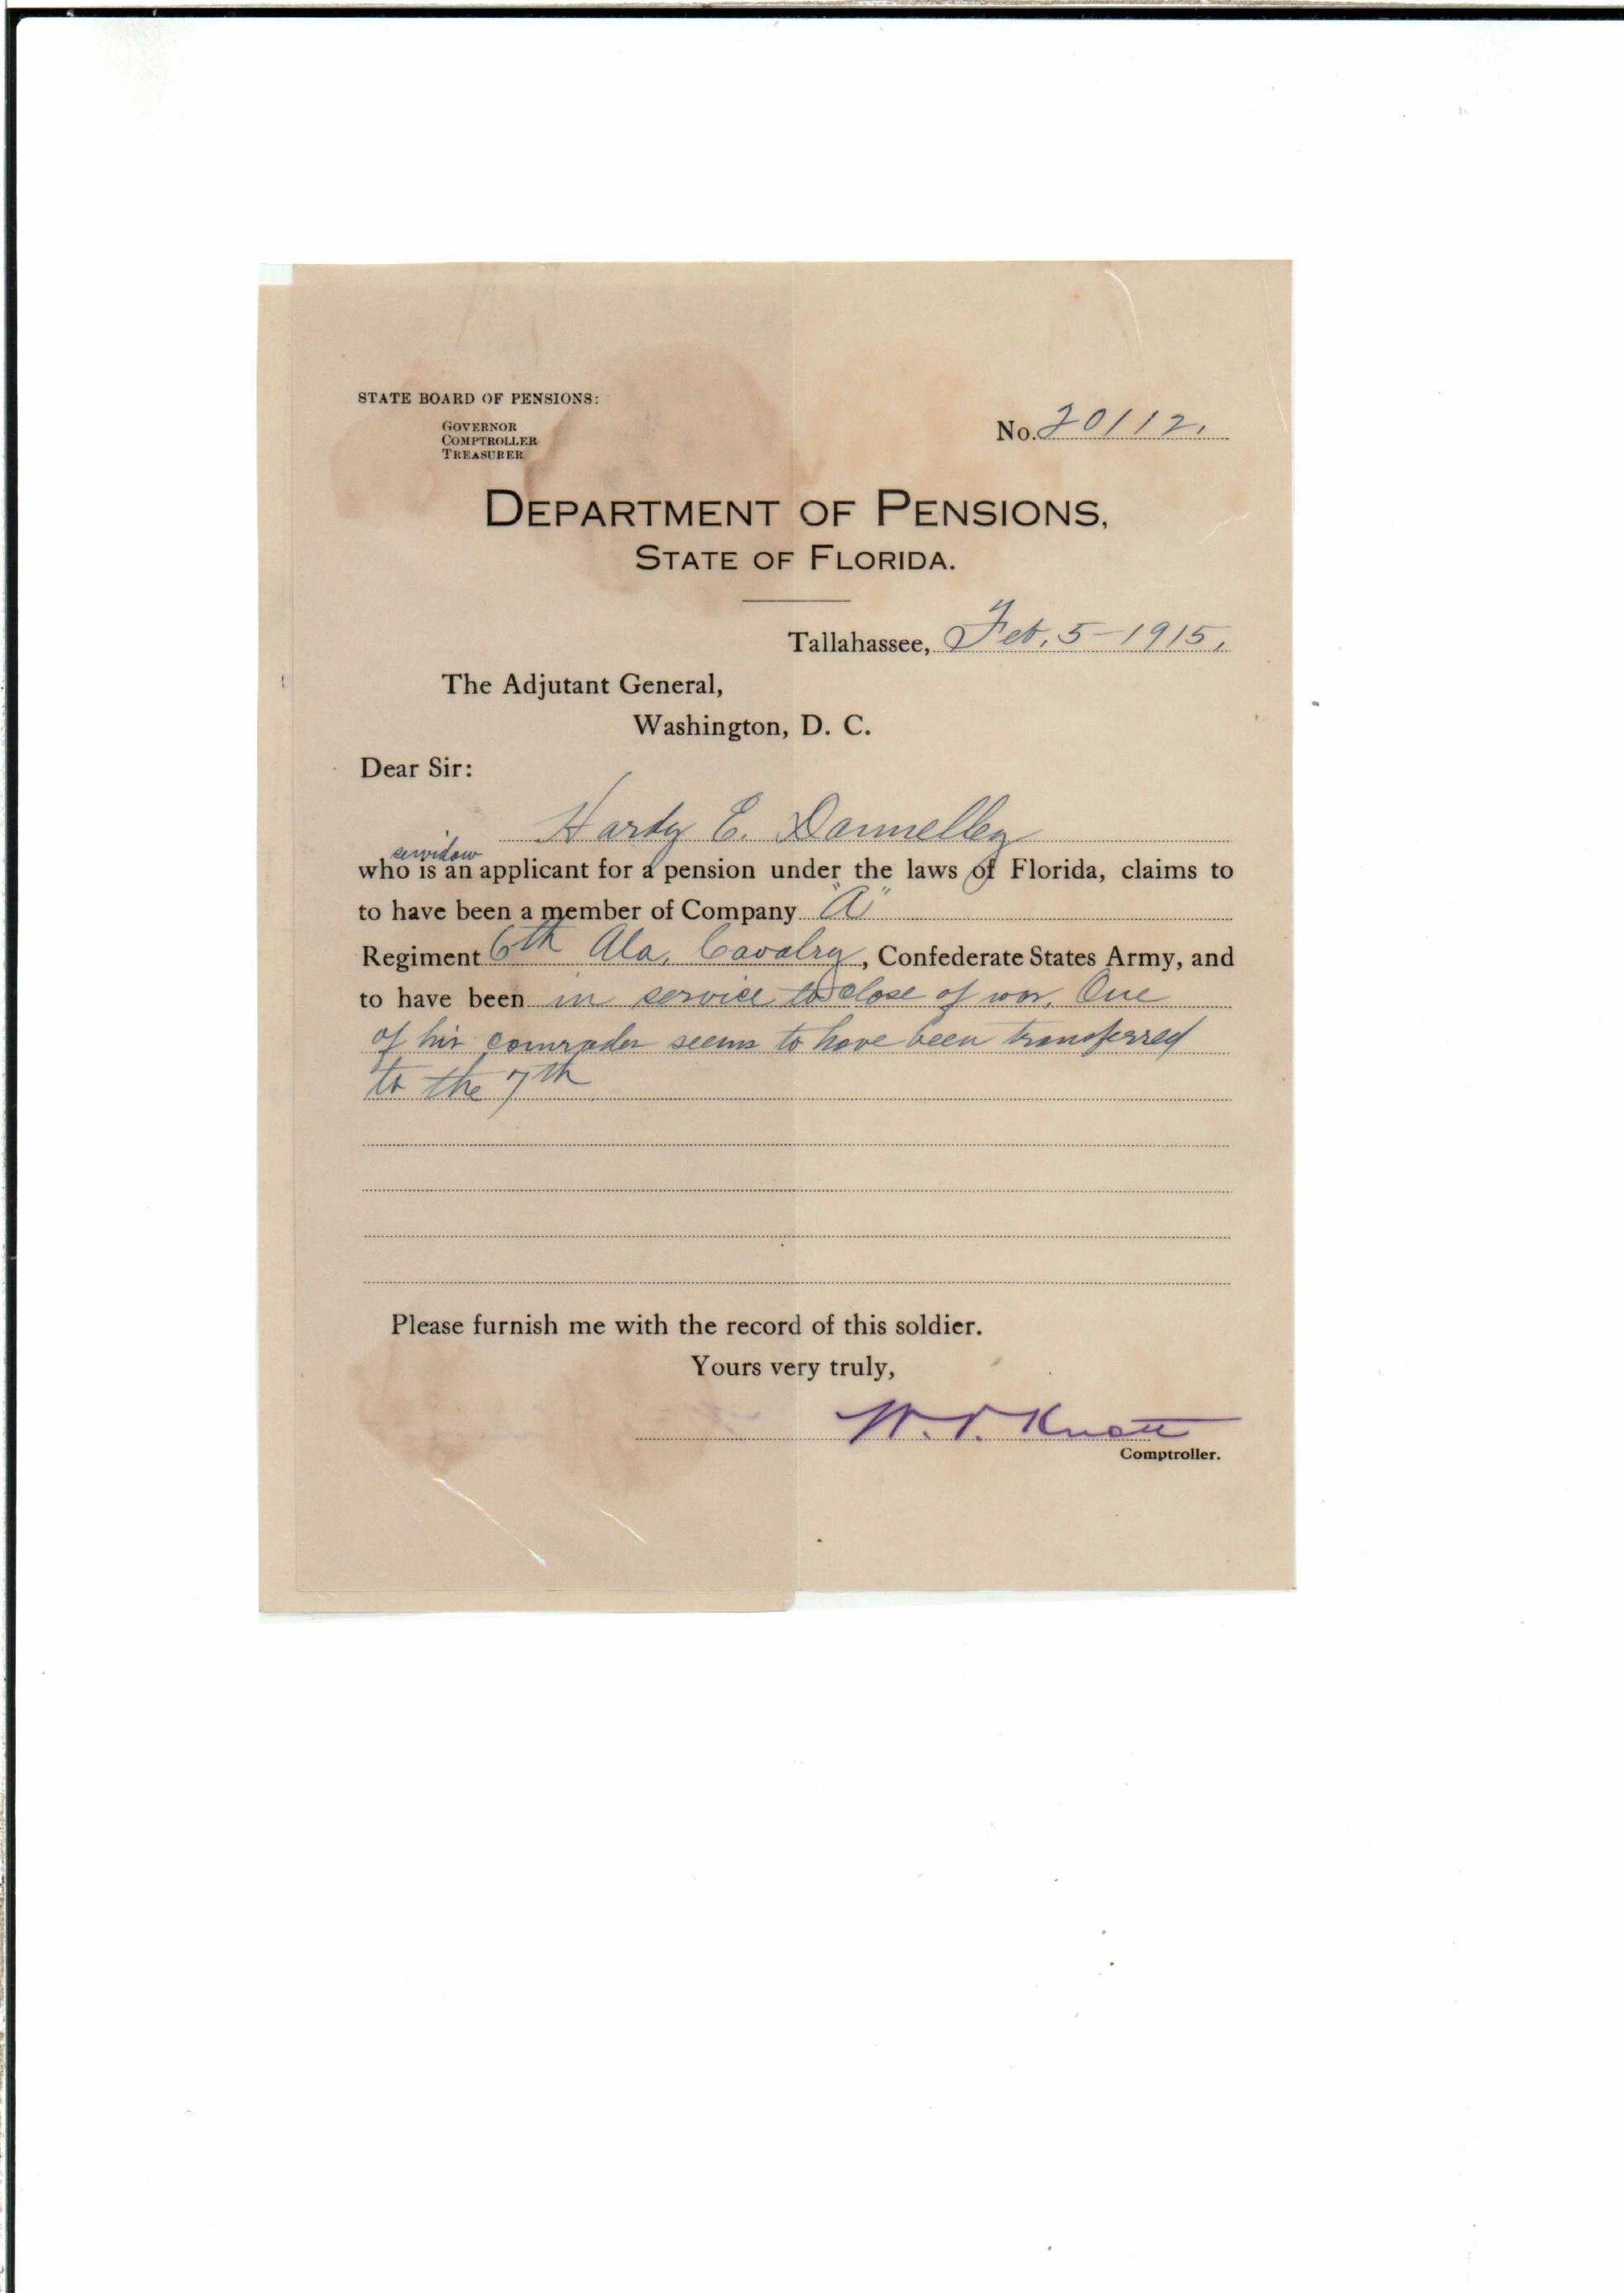 STATE BOARD OF PENSIONS:
GOVERNOR
COMPTROLLER
TREASURER
No. 20112.
DEPARTMENT OF PENSIONS,
STATE OF FLORIDA.
Tallahassee, Feb. 5-1915.
The Adjutant General,
Washington, D. C.
Dear Sir:
Hardy E. Dannelley
widow
who is an applicant for a pension under the laws of Florida, claims to
to have been a member of Company "A"
Regiment 6th Ala. Cavalry, Confederate States Army, and
to have been in service to close of war. One
of his comrades seems to have been transferred
to the 7th
Please furnish me with the record of this soldier.
Yours very truly,
W. V. Knott
Comptroller.